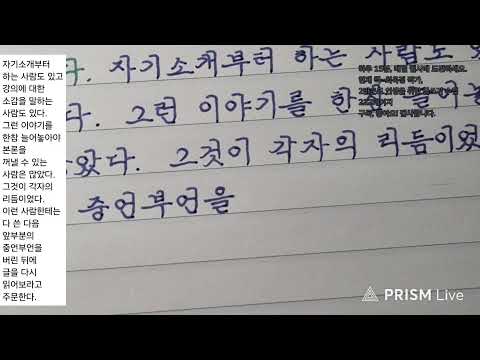 자기소개부터
하는 사람도 있고
강의에 대한
소감을 말하는
사람도 있다.
그런 이야기를
한참 늘어놓아야
본론을
꺼낼 수 있는
사람은 많았다.
그것이 각자의
리듬이었다.
이런 사람한테는
다 쓴 다음
앞부분의
중언부언을
버린 뒤에
글을 다시
읽어보라고
주문한다.
다. 자기소개부터 하는 사람도
다. 그런 이야기를 한참
았다. 그것이 각자의 리듬이었
중언부언을
하루 15분,
PRISM Live